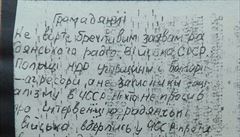 Громадяни!
Не вірте брехливим заявам ра
дянського радіо. Війська СРСР,
Польщі НДР Угорщини і Болгарії
-агресори, а не захисники соці
алізму в ЧССР. Ніхто не просив
про інтервенцію, радянські
війська вдерлись у ЧССР проти